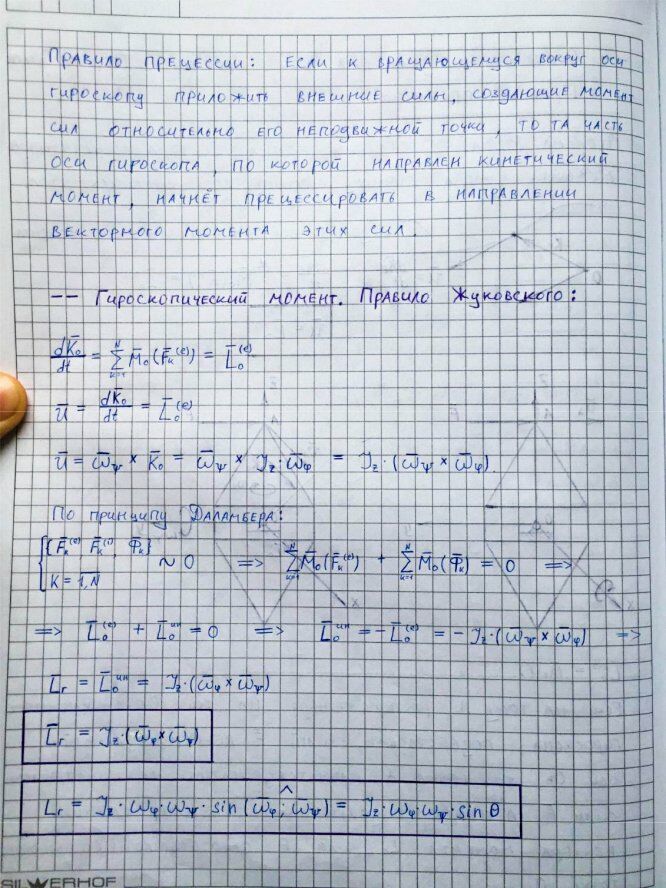 Правило прецессии: Если к вращающемуся вокруг оси
гироскопу приложить внешние силы, создающие момент
сил относительно его неподвижной точки, то та часть
оси гироскопа, по которой направлен кинетический
момент, начнёт прецессировать в направлении
векторного момента этих сил.
-- Гироскопический момент. Правило Жуковского:
dK̄₀/dt = Σ_{k=1}^{N} M̄₀(F̄ₖ⁽ᵉ⁾) = L̄₀⁽ᵉ⁾
ū = dK̄₀/dt = L̄₀⁽ᵉ⁾
ū = ω̄_ψ × K̄₀ = ω̄_ψ × J_z·ω̄_φ = J_z·(ω̄_ψ × ω̄_φ).
По принципу Даламбера:
{F̄ₖ⁽ᵉ⁾, F̄ₖ⁽ⁱ⁾, Φ̄ₖ} ~ 0 => Σ_{k=1}^{N} M̄₀(F̄ₖ⁽ᵉ⁾) + Σ_{k=1}^{N} M̄₀(Φ̄ₖ) = 0 =>
K = 1,N
=> L̄₀⁽ᵉ⁾ + L̄₀ᵘⁿ = 0 => L̄₀ᵘⁿ = -L̄₀⁽ᵉ⁾ = -J_z·(ω̄_ψ × ω̄_φ) =>
L̄г = L̄₀ᵘⁿ = J_z·(ω̄_φ × ω̄_ψ)
L̄г = J_z·(ω̄_φ × ω̄_ψ)
Lг = J_z·ω_φ·ω_ψ·sin(ω̄_φ; ω̄_ψ) = J_z·ω_φ·ω_ψ·sin θ
SILWERHOF